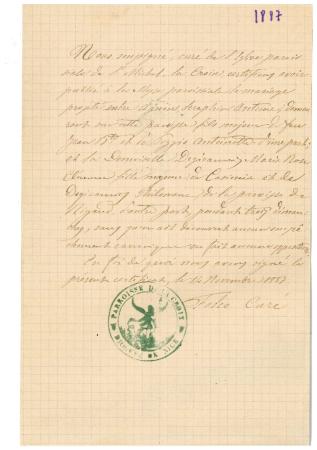 1887
Nous soussigné, curé de l'Eglise parois
siale de St Michel la Croix, certifions avoir
publié à la Messe paroissiale le mariage
projeté entre Séraphin Antoine, demeu
rant sur cette paroisse, fils majeur de feu
Jean Bte et de Antoinette d'une part;
et la Demoiselle Marie Rose
fille majeure de et de
Philomène, de la paroisse de
Rigaud, d'autre part, pendant trois diman
ches, sans qu'on ait découvert aucun empê
chement canonique ou fait aucune opposition.
En foi de quoi nous avons signé le
présent certificat, le 14 Novembre 1887.
Curé
PARROISSE DE LA CROIX
DIOCESE DE NICE